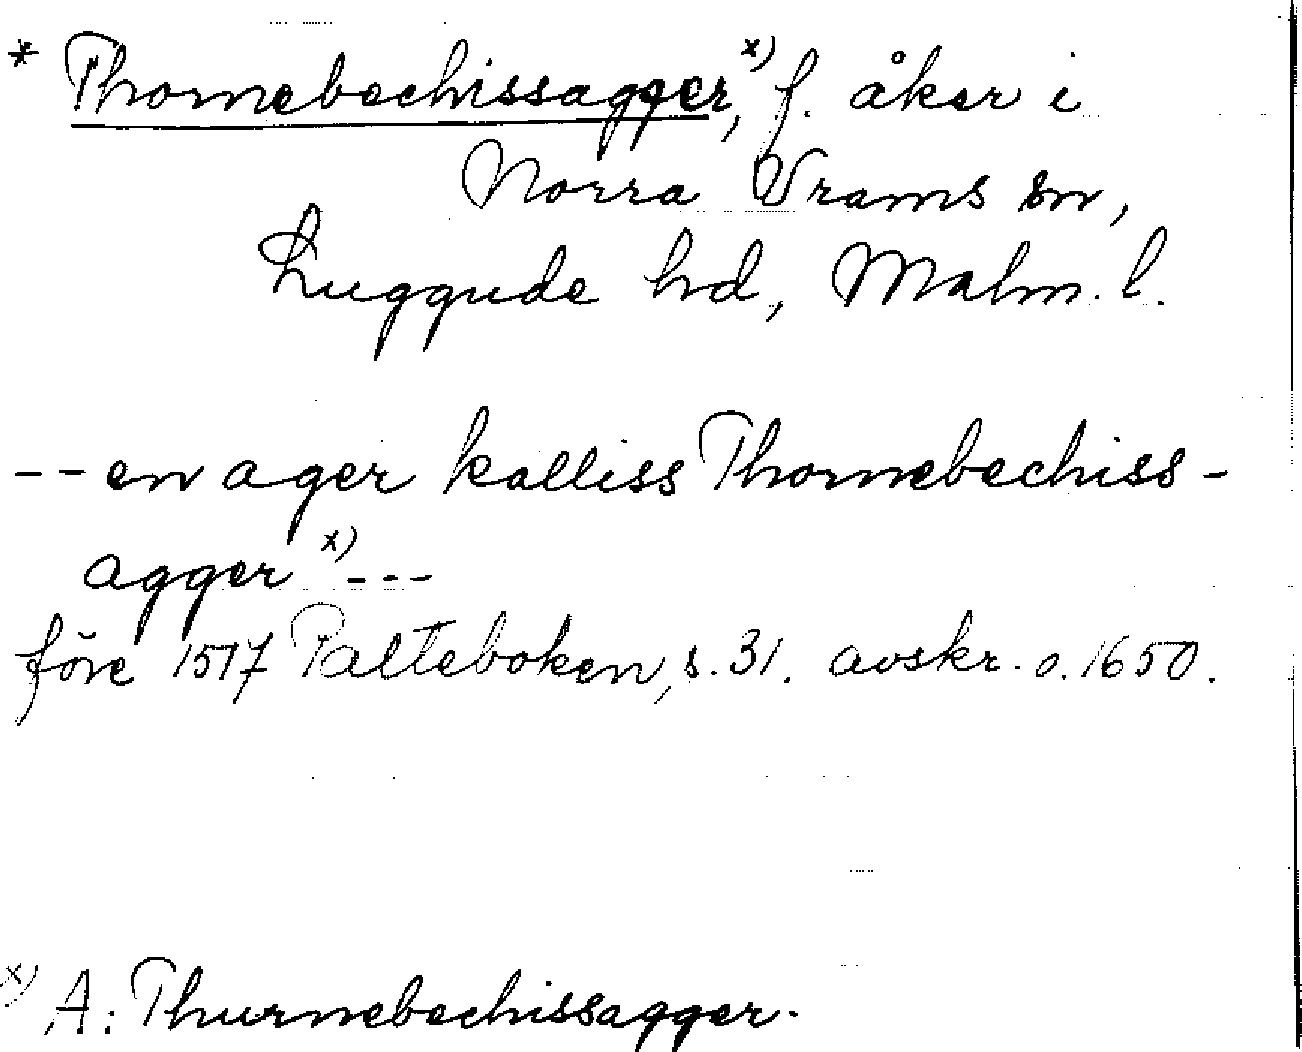 * Thornebechissagger,ˣ⁾ f. åker i
Norra Vrams sn,
Luggude hd, Malm. l.
-- en ager kalliss Thornebechiss-
agger ˣ⁾ ---
före 1517 Palteboken, s. 31. avskr. o. 1650.
ˣ⁾ A: Thurnebechissagger.